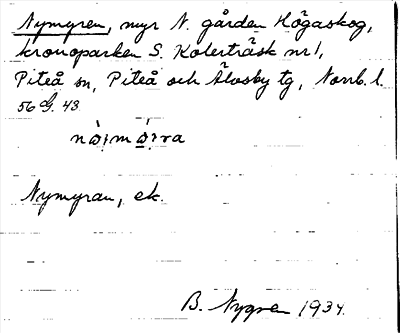 Nymyren, myr N. gården Högaskog,
kronoparken S. Kolerträsk nr 1,
Piteå sn, Piteå och Älvsby tg, Norrb. l.
56 G. 43
Nymyran, ek.
B. Nygren 1934.